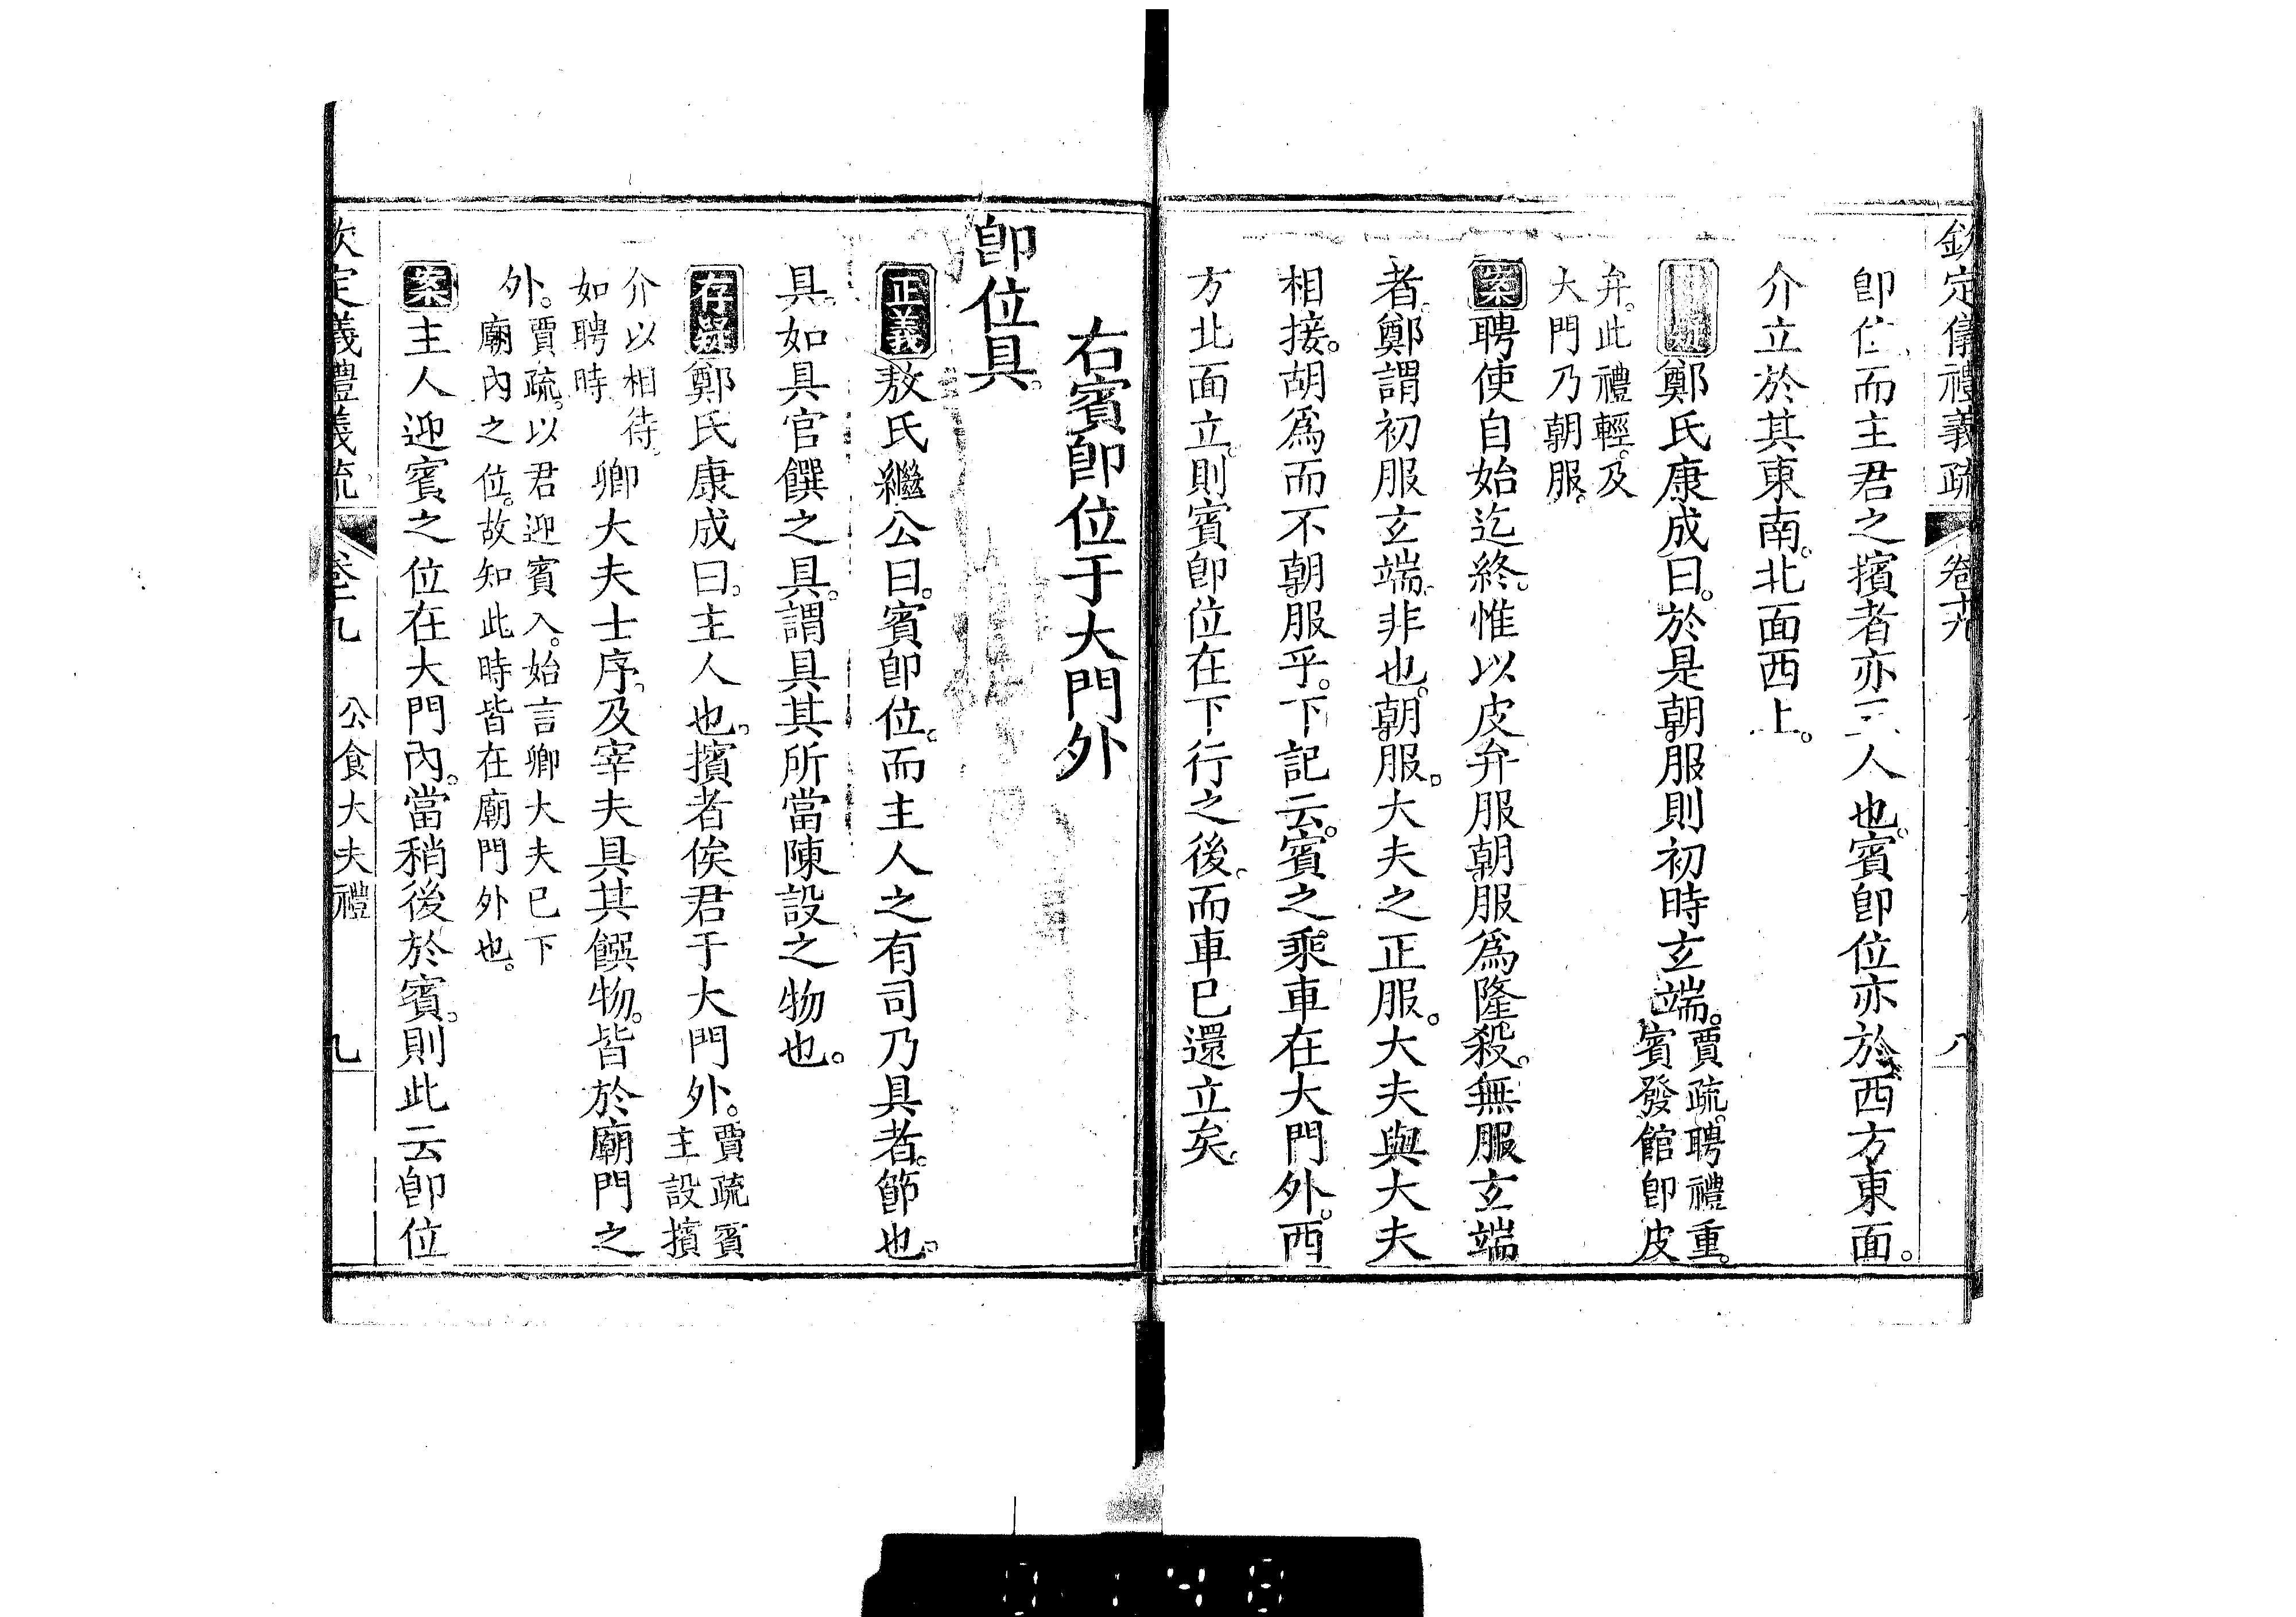 欽定儀禮義疏 卷十九 八
即位而主君之擯者亦三人也。賓即位亦於西方東面。
介立於其東南。北面西上。
鄭氏康成曰。於是朝服則初時玄端。賈疏。聘禮重。賓發館即皮
弁。此禮輕。及大門乃朝服。
案聘使自始迄終。惟以皮弁服朝服爲隆殺。無服玄端
者。鄭謂初服玄端。非也。朝服。大夫之正服。大夫與大夫
相接。胡爲而不朝服乎。下記云。賓之乘車在大門外。西
方北面立。則賓即位在下行之後。而車已還立矣。
右賓即位于大門外
即位具。
正義敖氏繼公曰。賓即位。而主人之有司乃具者。節也。
具。如具官饌之具。謂具其所當陳設之物也。
存疑鄭氏康成曰。主人也。擯者俟君于大門外。賈疏賓主設擯
介以相待。如聘時 卿大夫士序。及宰夫具其饌物。皆於廟門之
外。賈疏。以君迎賓入。始言卿大夫已下廟內之位。故知此時皆在廟門外也。
案主人迎賓之位在大門內。當稍後於賓。則此云即位
欽定儀禮義疏 卷十九 公食大夫禮 九
0148